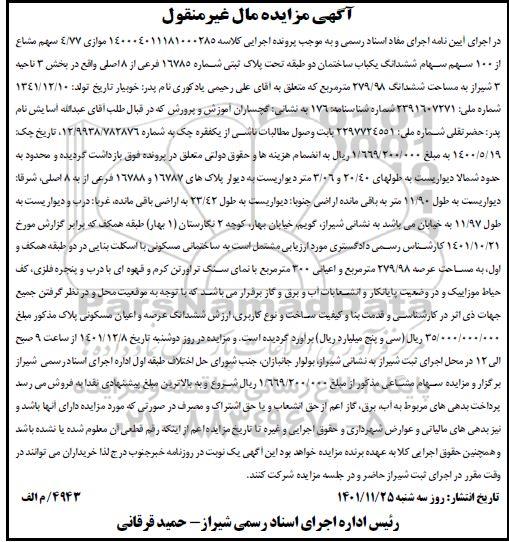 آگهی مزایده مال غیرمنقول
در اجرای آیین نامه اجرای مفاد اسناد رسمی و به موجب پرونده اجرایی کلاسه ۱۴۰۰۰۴۰۱۱۱۸۱۰۰۰۲۸۵ موازی ۴/۷۷ سهم مشاع
از ۱۰۰ سهم سهام ششدانگ یکباب ساختمان دو طبقه تحت پلاک ثبتی شماره ۱۶۷۸۵ فرعی از ۸ اصلی واقع در بخش ۳ ناحیه
۳ شیراز به مساحت ششدانگ ۲۷۹/۹۸ مترمربع که متعلق به آقای علی رحیمی یادکوری نام پدر: خوبیار تاریخ تولد: ۱۳۴۱/۱۲/۱۰
شماره ملی: ۲۳۹۱۶۰۷۲۷۱ شماره شناسنامه: ۱۷۶ به نشانی: گچساران آموزش و پرورش که در قبال طلب آقای عبدالله آسایش نام
پدر: حضرتقلی شماره ملی: ۲۲۹۷۷۳۴۵۵۱ بابت وصول مطالبات ناشی از یکفقره چک به شماره ۱۲/۹۹۳۸/۷۸۲۸۷۶، تاریخ چک:
۱۴۰۰/۵/۱۹ به مبلغ ۱/۶۶۹/۲۰۰/۰۰۰ ریال به انضمام هزینه ها و حقوق دولتی متعلق در پرونده فوق بازداشت گردیده و محدود به
حدود شمالا دیواریست به طولهای ۲۰/۴۰ و ۳/۰۶ متر دیواریست به دیوار پلاک های ۱۶۷۸۷ و ۱۶۷۸۸ فرعی از به ۸ اصلی، شرقا:
دیواریست به طول ۱۱/۹۰ متر به باقی مانده اراضی جنوبا: دیواریست به طول ۲۳/۴۲ به اراضی باقی مانده، غربا: درب و دیواریست به
طول ۱۱/۹۷ به خیابان می باشد به نشانی شیراز، گویم، خیابان بهار، کوچه ۲ نگارستان (۱ بهار) طبقه همکف که برابر گزارش مورخ
۱۴۰۱/۱۰/۲۱ کارشناس رسمی دادگستری مورد ارزیابی مشتمل است به ساختمانی مسکونی با اسکلت بنایی در دو طبقه همکف و
اول، به مساحت عرصه ۲۷۹/۹۸ مترمربع و اعیانی ۳۰۰ مترمربع با نمای سنگ تراورتن کرم و قهوه ای با درب و پنجره فلزی، کف
حیاط موزاییک و در وضعیت پایانکار و انشعابات آب و برق و گاز برقرار می باشد که با توجه به موقعیت محل و در نظر گرفتن جمیع
جهات ذی اثر در کارشناسی و قدمت بنا و کیفیت ساخت و نوع کاربری، ارزش ششدانگ عرصه و اعیان مسکونی پلاک مذکور مبلغ
۳۵/۰۰۰/۰۰۰/۰۰۰ ریال (سی و پنج میلیارد ریال) برآورد گردیده است. و مزایده در روز دوشنبه تاریخ ۱۴۰۱/۱۲/۸ از ساعت ۹ صبح
الی ۱۲ در محل اجرای ثبت شیراز به نشانی شیراز، بولوار جانبازان، جنب شورای حل اختلاف طبقه اول اداره اجرای اسناد رسمی شیراز
برگزار و مزایده سهام مشاعی مذکور از مبلغ ۱/۶۶۹/۲۰۰/۰۰۰ ریال شروع و به بالاترین مبلغ پیشنهادی نقدا به فروش می رسد
پرداخت بدهی های مربوط به آب، برق، گاز اعم از حق انشعاب و یا حق اشتراک و مصرف در صورتی که مورد مزایده دارای آنها باشد و
نیز بدهی های مالیاتی و عوارض شهرداری و حقوق اجرایی و غیره تا تاریخ مزایده اعم از اینکه رقم قطعی آن معلوم شده یا نشده باشد
و همچنین حقوق اجرایی کلا به عهده برنده مزایده خواهد بود این آگهی یک نوبت در روزنامه خبرجنوب درج لذا خریداران می توانند در
وقت مقرر در اجرای ثبت شیراز حاضر و در جلسه مزایده شرکت کنند.
تاریخ انتشار: روز سه شنبه ۱۴۰۱/۱۱/۲۵
۴۹۴۳/م الف
رئیس اداره اجرای اسناد رسمی شیراز - حمید فرقانی